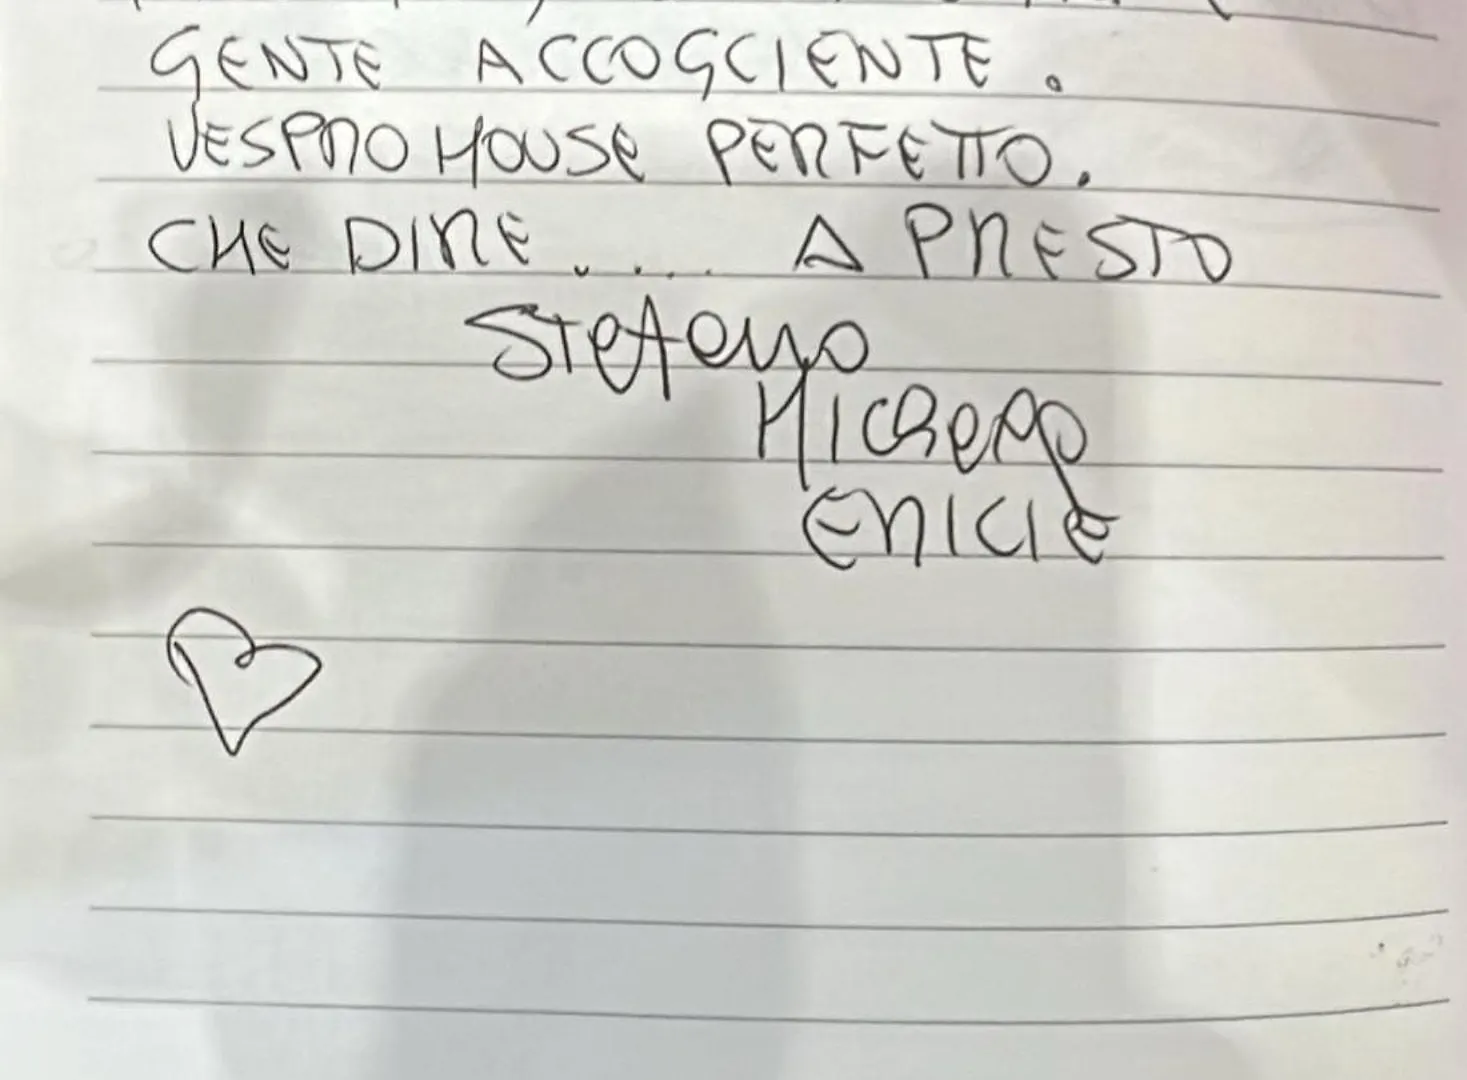 GENTE ACCOGLIENTE.
VESPRO HOUSE PERFETTO.
CHE DIRE..... A PRESTO
Stefano
Michela